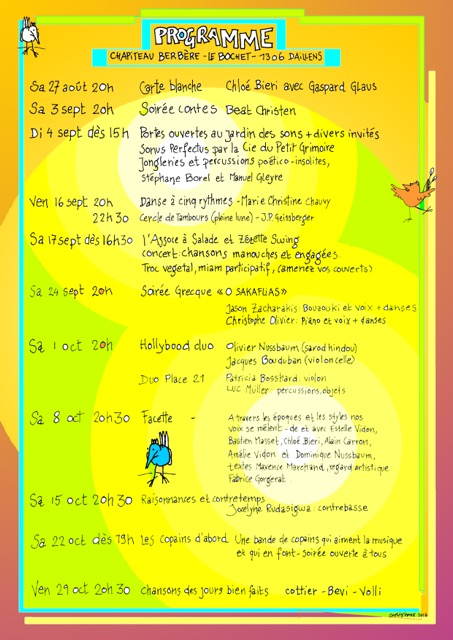 PROGRAMME
CHAPITEAU BERBÈRE - LE BOCHET - 1306 DAILLENS
Sa 27 août 20h Carte blanche Chloé Bieri avec Gaspard Glaus
Sa 3 sept 20h Soirée contes Beat Christen
Di 4 sept dès 15h Portes ouvertes au jardin des sons + divers invités
Sonus Perfectus par la Cie du Petit Grimoire
Jongleries et percussions poético-insolites,
Stéphane Borel et Manuel Gleyre
Ven 16 sept 20h Danse à cinq rythmes - Marie Christine Chauvy
22h30 Cercle de Tambours (pleine lune) - J.P. Geissberger
Sa 17 sept dès 16h30 l'Assoce à Salade et Zézette Swing
concert: chansons manouches et engagées.
Troc vegetal, miam participatif, (amenez vos couverts)
Sa 24 sept 20h Soirée Grecque «O SAKAFLIAS»
Jason Zacharakis Bouzouki et voix + danses
Christophe Olivier: Piano et voix + danses
Sa 1 oct 20h Hollybood duo Olivier Nussbaum (sarod hindou)
Jacques Bouduban (violoncelle)
Duo Place 21 Patricia Bosshard: violon
Luc Müller: percussions, objets
Sa 8 oct 20h30 Facette - A travers les époques et les styles nos
voix se mêlent - de et avec Estelle Vidon,
Bastien Masset, Chloé Bieri, Alain Carron,
Amélie Vidon et Dominique Nussbaum,
textes Maxence Marchand, regard artistique
Fabrice Gorgerat.
Sa 15 oct 20h30 Raisonnances et contretemps
Jocelyne Rudasigwa: contrebasse
Sa 22 oct dès 19h Les Copains d'abord Une bande de copains qui aiment la musique
et qui en font - soirée ouverte à tous
Ven 29 oct 20h30 chansons des jours bien faits cottier - Bevi - Volli